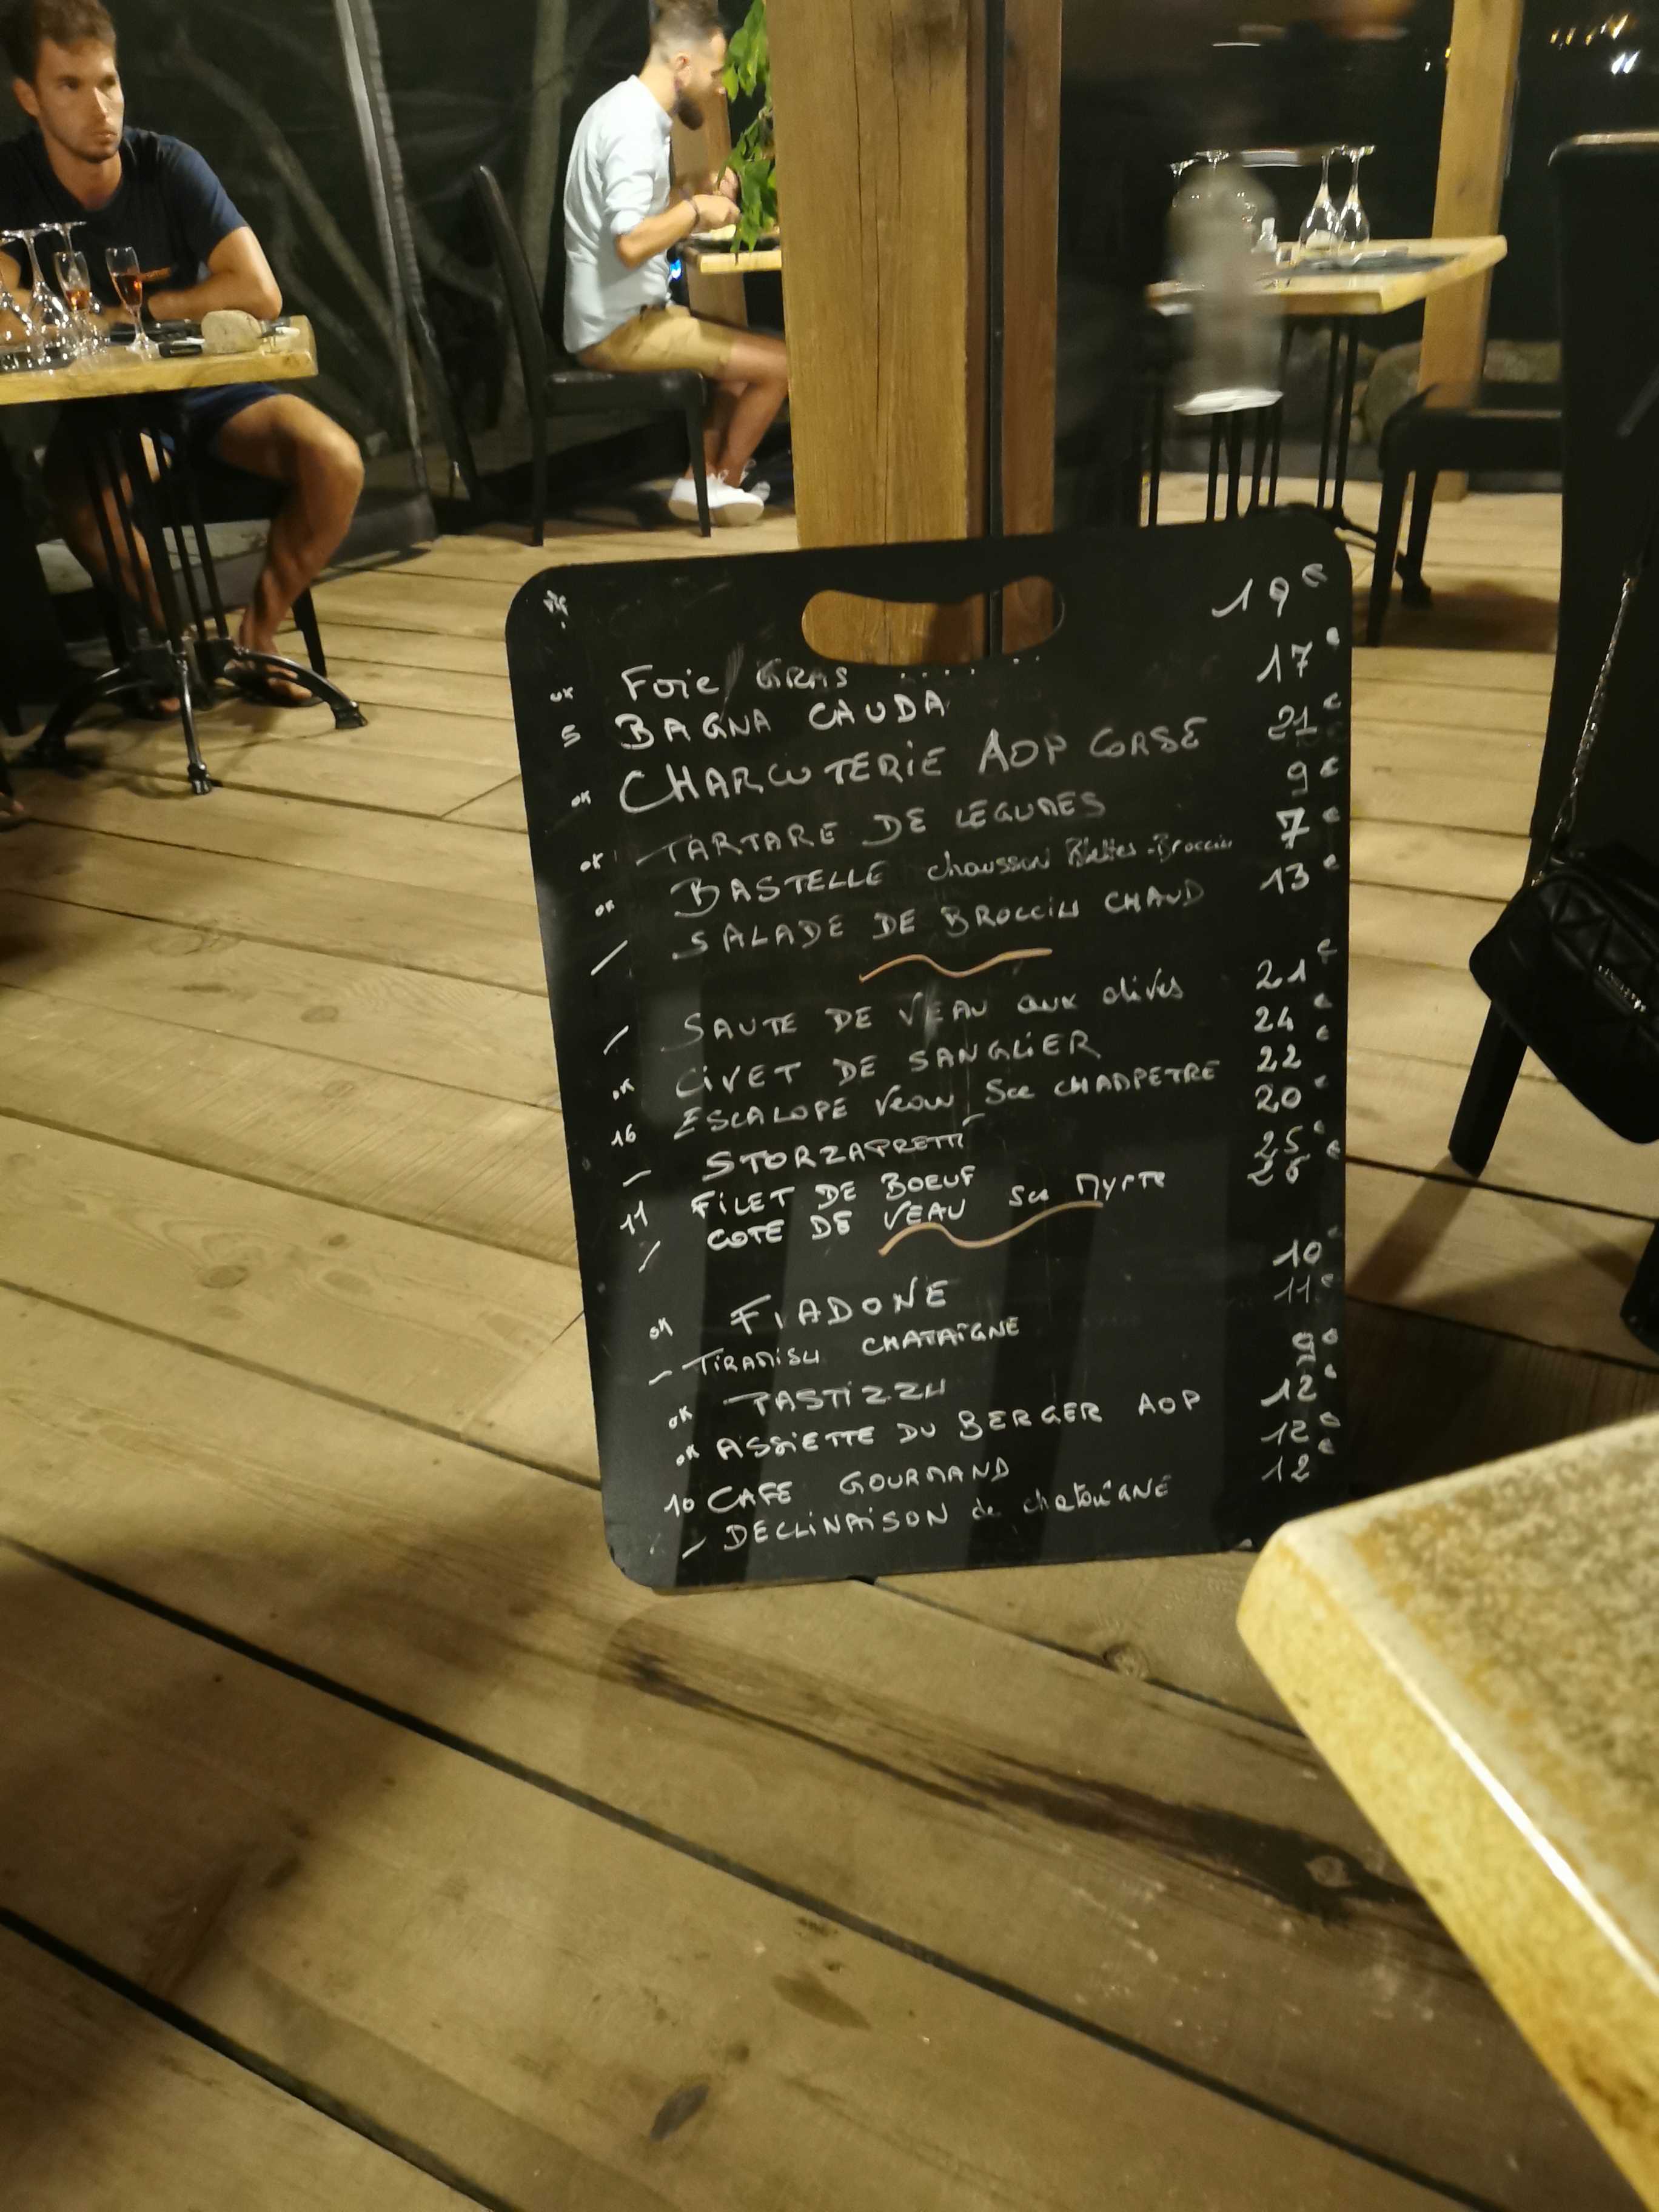 19€
ok Foie GRAS ..... 17€
5 BAGNA CAUDA 21€
ok CHARCUTERIE AOP CORSE 9€
ok TARTARE DE LEGUMES 7€
ok BASTELLE chausson Blettes-Brocciu 13€
/ SALADE DE BROCCIU CHAUD
/ SAUTE DE VEAU aux olives 21€
ok CIVET DE SANGLIER 24€
16 ESCALOPE Veau Sce CHAMPETRE 22€
- STORZAPRETTI 20
11 FILET DE BOEUF 25€
/ COTE DE VEAU Sce MYRTE €
ok FIADONE 10€
- TIRAMISU CHATAIGNE 11€
ok PASTIZZU 9€
ok ASSIETTE DU BERGER AOP 12€
10 CAFE GOURMAND 12€
/ DECLINAISON de chataîGNE 12€